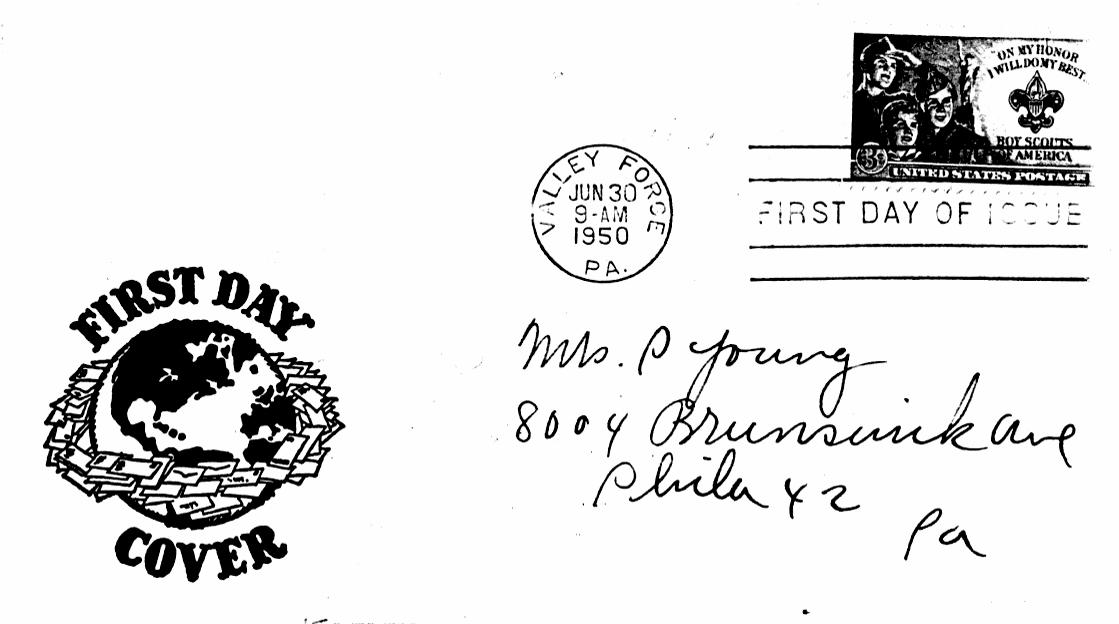 "ON MY HONOR
I WILL DO MY BEST...
BOY SCOUTS
OF AMERICA
3¢
UNITED STATES POSTAGE
VALLEY FORGE
JUN 30
9-AM
1950
PA.
FIRST DAY OF ISSUE
FIRST DAY
COVER
Mrs. P Young
8004 Brunswick Ave
Phila 42
Pa